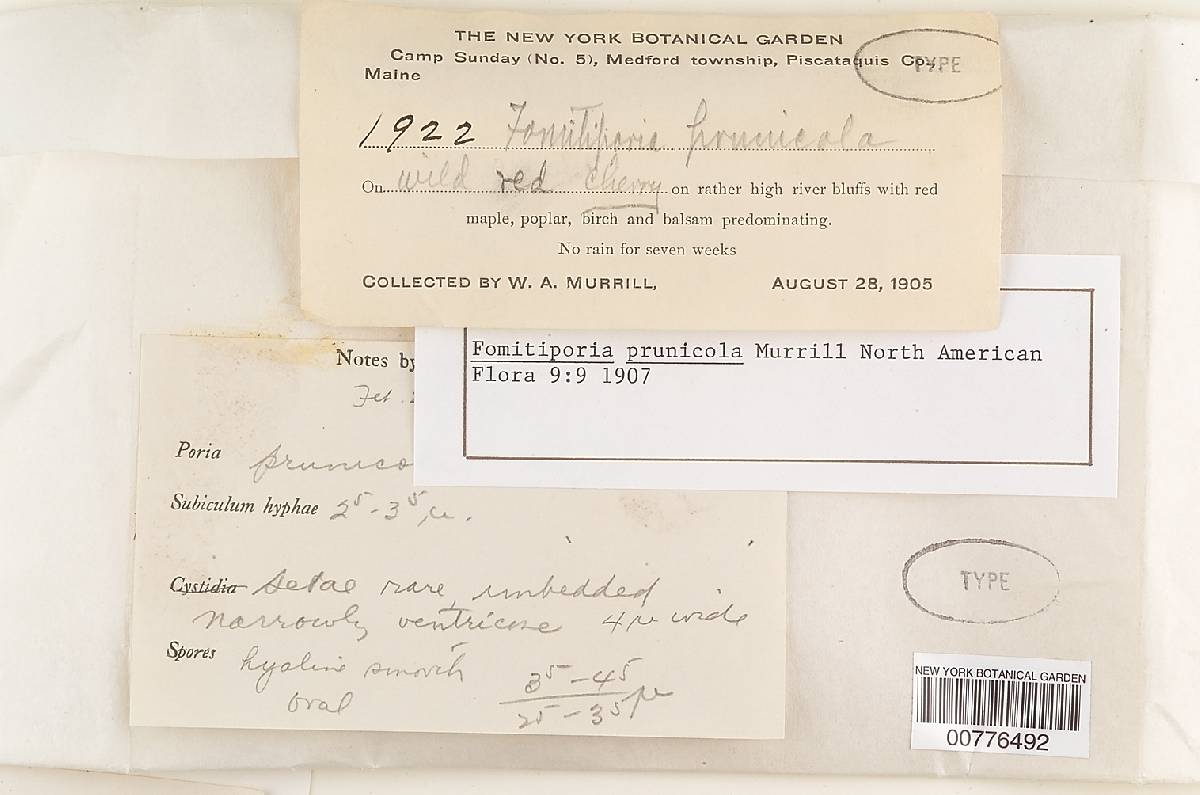 THE NEW YORK BOTANICAL GARDEN
Camp Sunday (No. 5), Medford township, Piscataquis Co.,
Maine
TYPE
1922 Fomitiporia prunicola
On wild red cherry on rather high river bluffs with red
maple, poplar, birch and balsam predominating.
No rain for seven weeks
COLLECTED BY W. A. MURRILL, AUGUST 28, 1905
Fomitiporia prunicola Murrill North American
Flora 9:9 1907
Notes by
Feb.
Poria prunico
Subiculum hyphae 2⁵-3⁵ μ.
Cystidia Setae rare, imbedded
narrowly ventricose 4 μ wide
Spores hyaline smooth
oval
3⁵-4⁵
2⁵-3⁵ μ
TYPE
NEW YORK BOTANICAL GARDEN
00776492